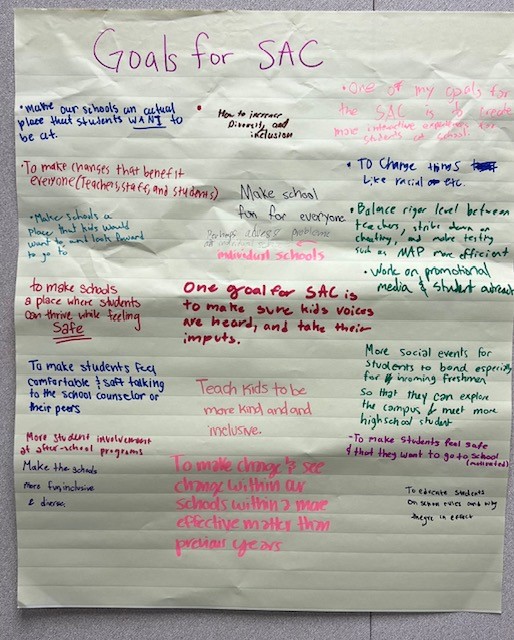 Goals for SAC
• make our schools an actual
place that students WANT to
be at.
• How to increase
Diversity and
inclusion
• One of my goals for
the SAC is to create
more interactive experiences for
students at school.
• To make changes that benefit
everyone (Teachers, staff, and students)
• TO Change things
Like racial or etc.
Make school
fun for everyone
• Make schools a
place that kids would
want to and look foward
to go to
Perhaps address problems
individual schools
• Balance rigor level between
teachers, strike down on
cheating, and make testing
such as MAP more efficient
• Work on promotional
media & student outreach
to make schools
a place where students
can thrive while feeling
Safe
One goal for SAC is
to make sure kids voices
are heard, and take their
imputs.
More social events for
students to bond especially
for incoming freshmen
so that they can explore
the campus & meet more
highschool student
To make students feel
comfortable & safe talking
to the school counselor or
their peers
Teach kids to be
more kind and and
inclusive.
More student involvement
at after-school programs
- To make students feel safe
& that they want to go to school
(motivated)
Make the schools
more fun, inclusive
& diverse.
To make change & see
change within our
schools within a more
effective matter than
previous years
To educate students
on school rules and why
theyre in effect